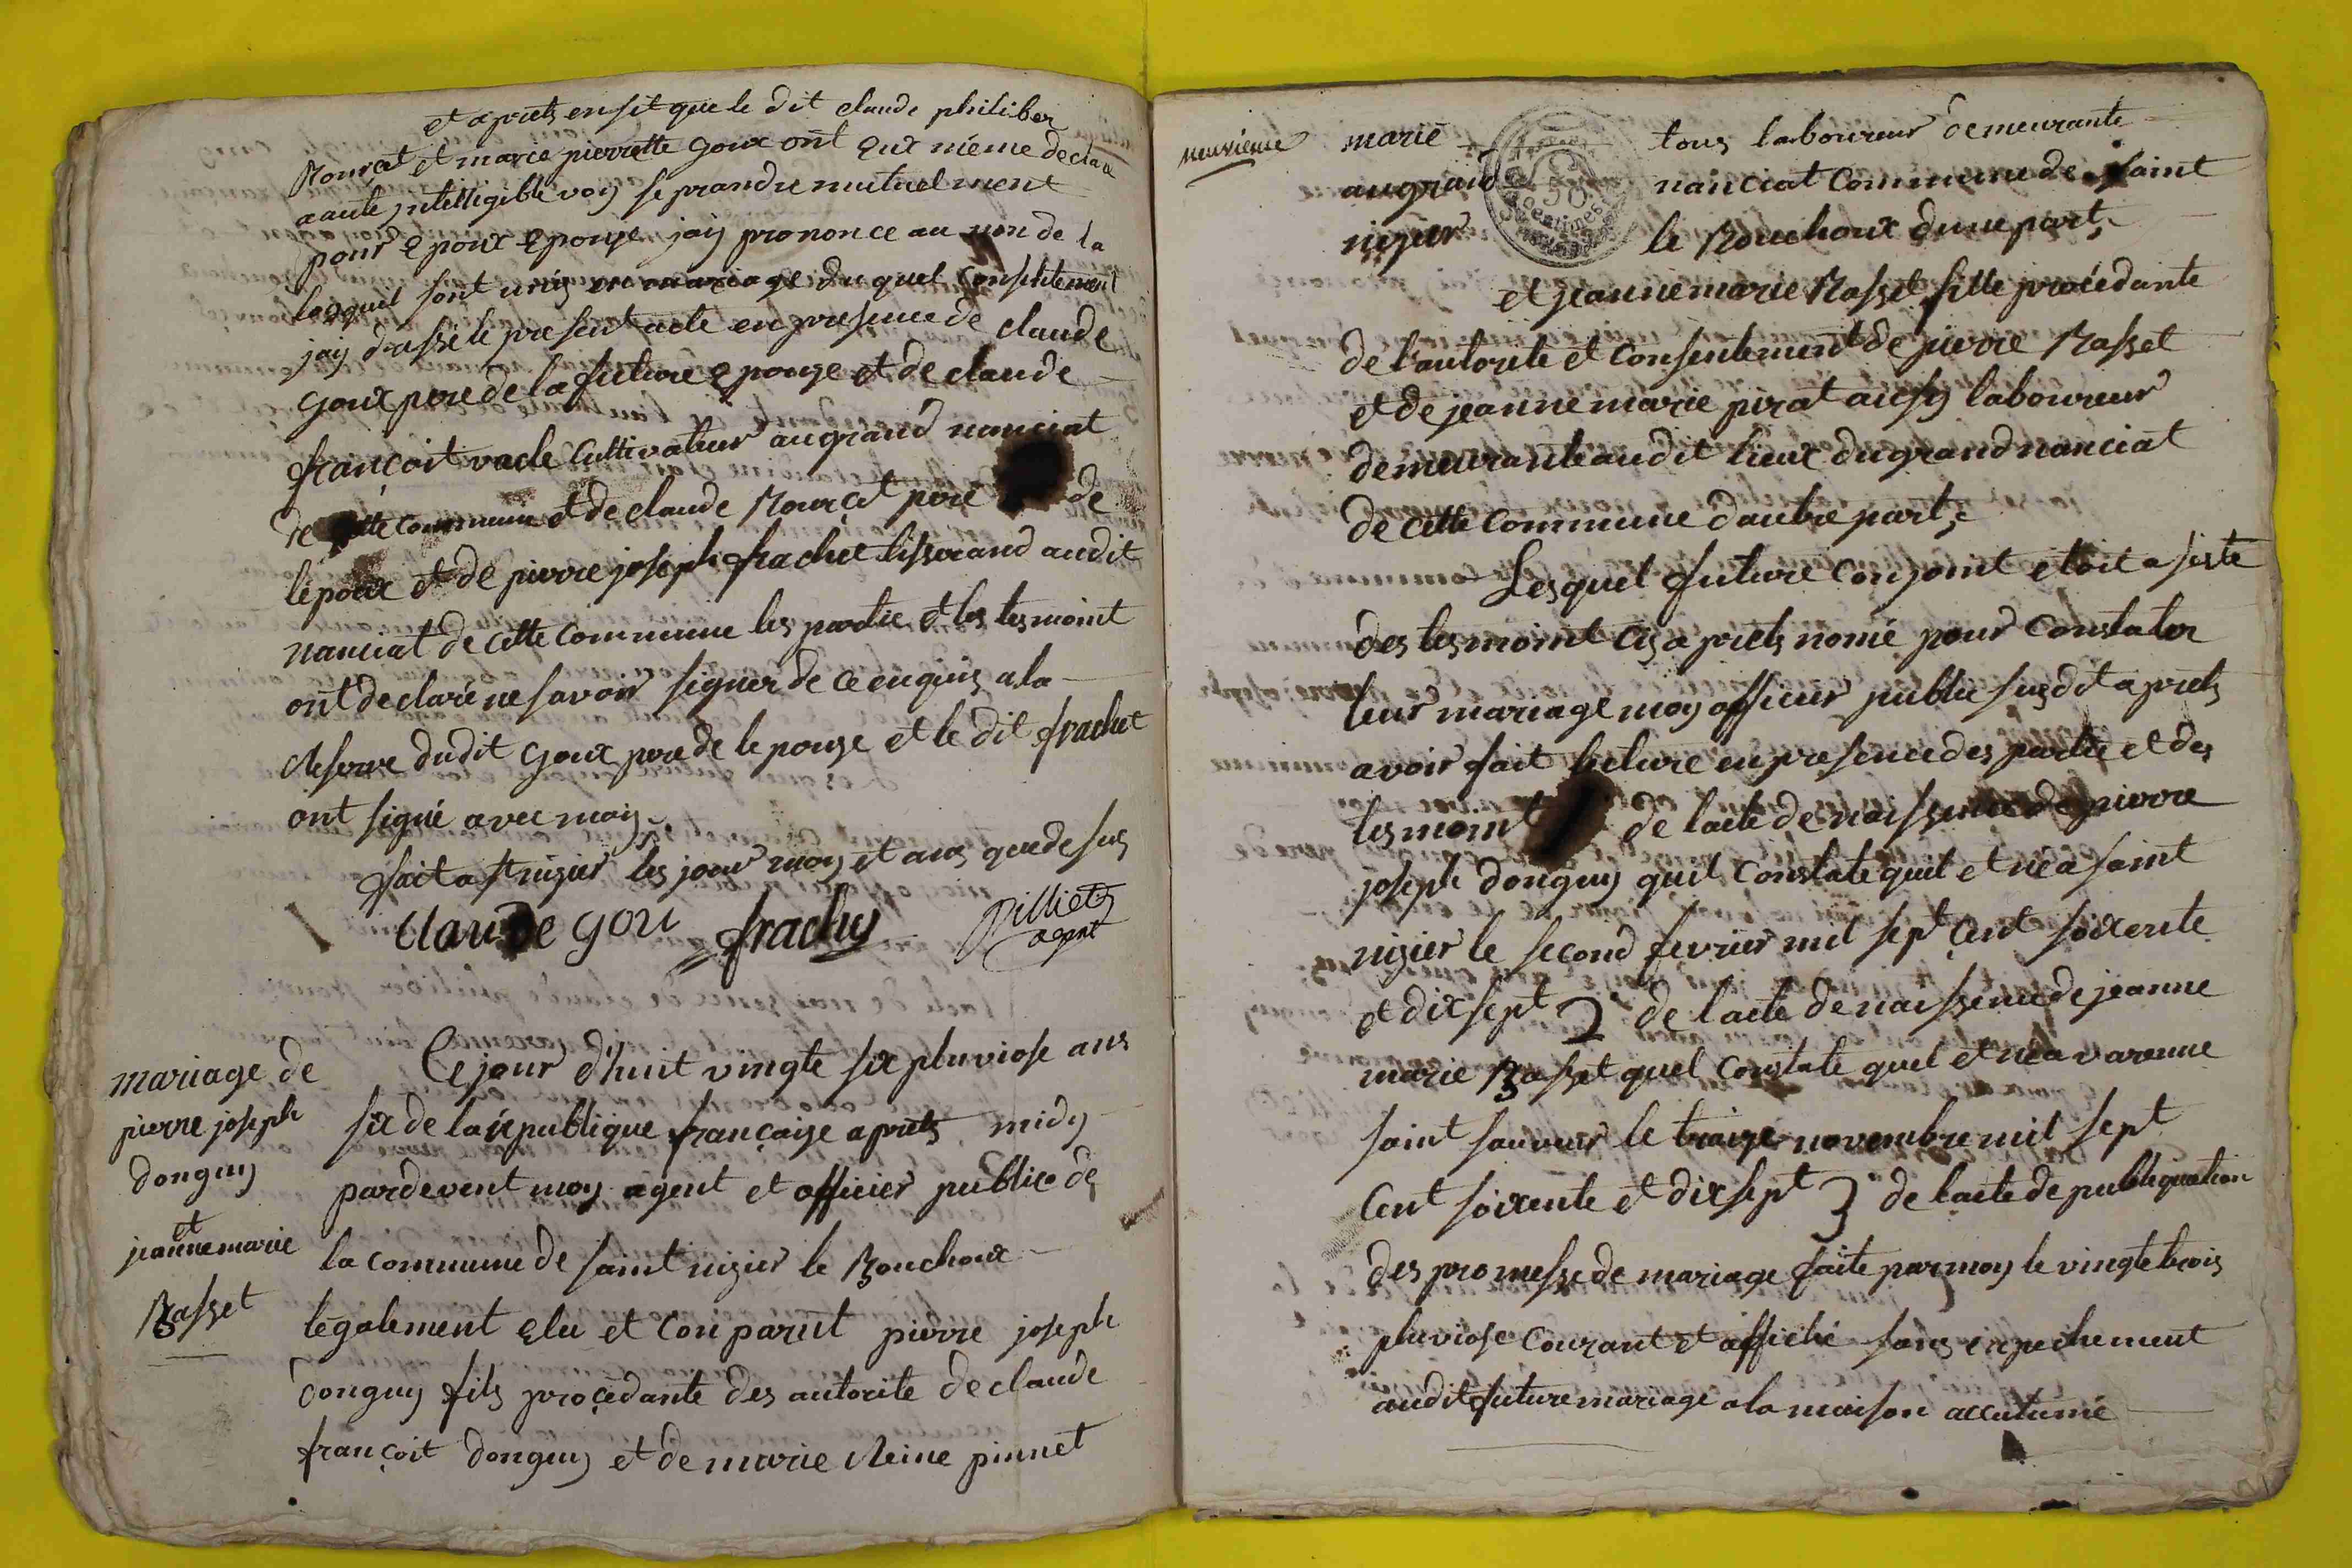 et apriets ensit que le dit claude philiber
Rourcat et marie pierrette goux ont eux même declara
aaute intelligible voy se prandre mutuelment
pour epoux epouze jaij prononce au non de la
lasquel sont unis en mariage du quel consentement
jaij drassé le present acte en presence de claude
goux pere de la future epouze et de claude
françoit vacle Cultivateur augrand nanciat
de cette commune et de claude Rourcat pere de
lépoux et de pierre joseph frachet tisserand audit
nanciat de cette commune les partie et les tesmoint
ont declaré ne savoir signer de ce enquis ala
Reserve dudit goux pere de lepouze et le dit frachet
ont signé avec moij
fait a st nizier les jour moy et ans que desus
Claude gou frachy Pilliets
agent
mariage de
pierre joseph
donguy
et
jeanne marie
Rasset
Ce jour d'huit vingte six pluviose ans
six de la republique françaize apriets midy
pardevent moy agent et officier publice de
la commune de saint nizier le Bouchoux
legalement elu et conparut pierre joseph
donguy fils procedante des autorite de claude
françoit donguy et de marie Reine pinnet
neuvieme
marié
augrand
nizier
tous laboureur demeurante
nanciat commune de saint
le Bouchoux dune part,
et jeanne marie Rasset fille procédante
de l'autorite et consentement de pierre Rasset
et de jeanne marie pirat aussy laboureur
demeurante audit lieux dugrand nanciat
de cette commune dautre part,
Lesquel future conjoint etoit asiste
des tesmoint cy apriets nomé pour constater
leur mariage moy officier public susdit apriets
avoir fait lecture en presence des partie et des
tesmoint de lacte de naissence de pierre
joseph donguy quil constate quil et né a saint
nizier le second fevrier mil sept Cent soixente
et dix sept 2° de lacte de naissence de jeanne
marie Rasset quel constate quel et né a varenne
saint sauveur le traize novembre mil sept
Cent soixente et dix sept 3° de lacte de publiquation
des promesse de mariage faite par moy le vingte trois
pluviose courant et affiché sans enpechement
audit future mariage a la maison accutumé